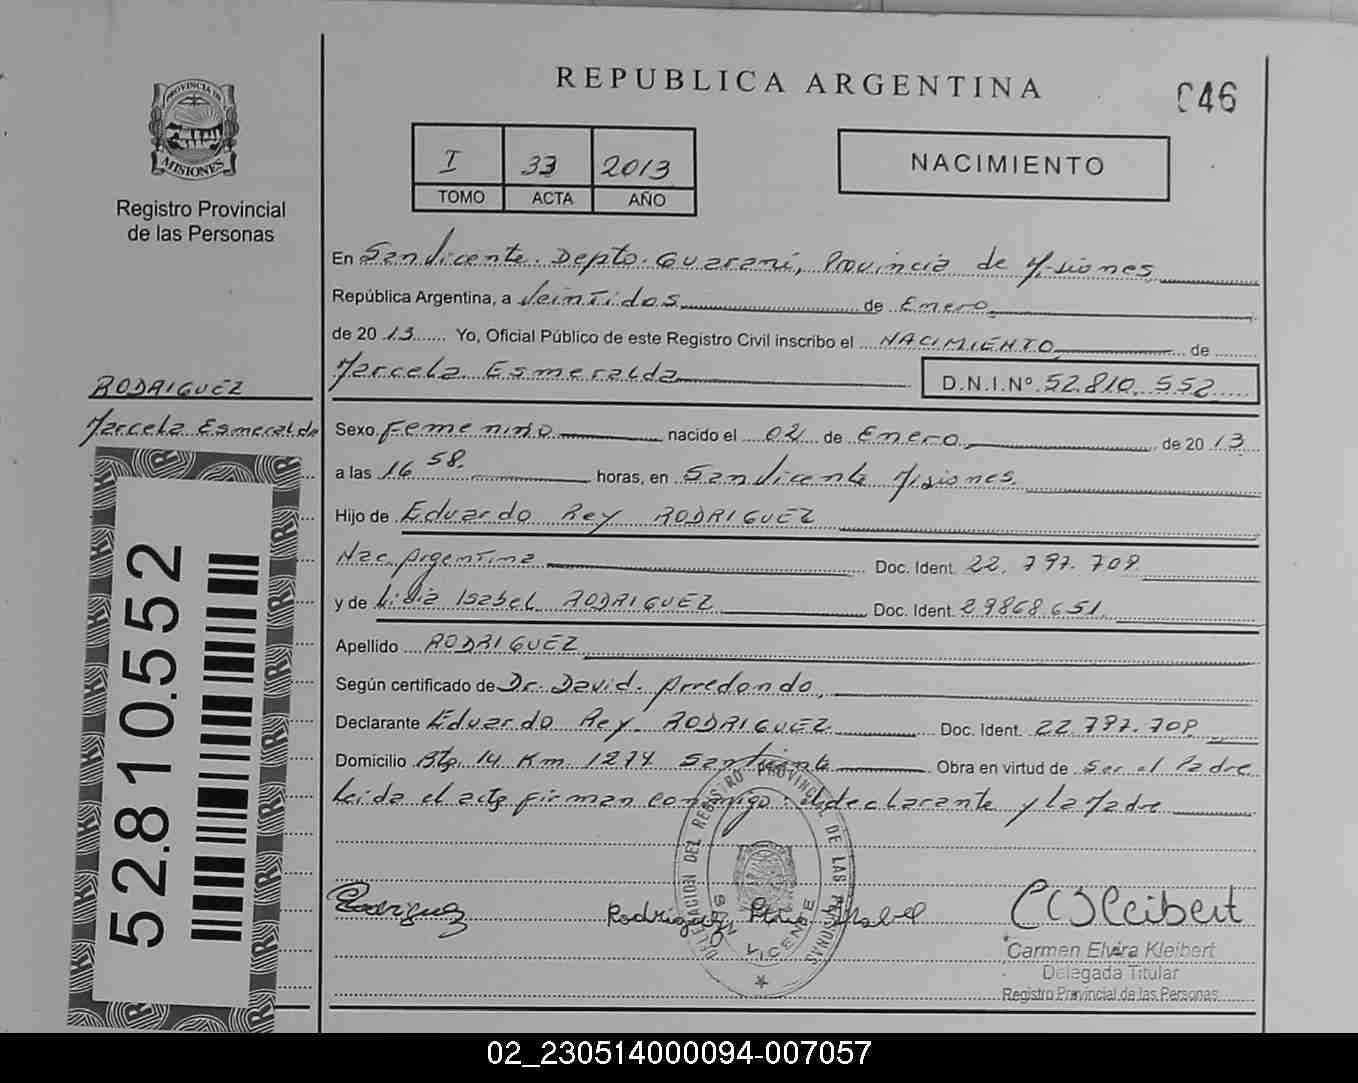 REPUBLICA ARGENTINA
046
PROVINCIA DE
MISIONES
Registro Provincial
de las Personas
I 33 2013
TOMO ACTA AÑO
NACIMIENTO
En San Vicente. Depto. Guaraní, Provincia de Misiones
República Argentina, a Veintidos de Enero
de 20 13 Yo, Oficial Público de este Registro Civil inscribo el NACIMIENTO de
Marcela Esmeralda D.N.I.Nº 52.810.552
RODRIGUEZ
Marcela Esmeralda
Sexo Femenino nacido el 02 de Enero de 20 13
a las 16 58. horas, en San Vicente Misiones.
Hijo de Eduardo Rey RODRIGUEZ
Nac. Argentina Doc. Ident. 22.797.708
y de Lidia Isabel RODRIGUEZ Doc. Ident. 29868.651.
Apellido RODRIGUEZ
Según certificado de Dr. David. Arredondo,
Declarante Eduardo Rey RODRIGUEZ Doc. Ident. 22.797.708
Domicilio Km 1274 San Vicente Obra en virtud de Ser el Padre
Leida el acta firman conmigo: el declarante y la Madre
52.810.552
DELEGACION DEL REGISTRO PROVINCIAL DE LAS PERSONAS
SAN VICENTE
Rodriguez
Rodriguez Isabel
CEKleibert
Carmen Elvira Kleibert
Delegada Titular
Registro Provincial de las Personas
02_230514000094-007057